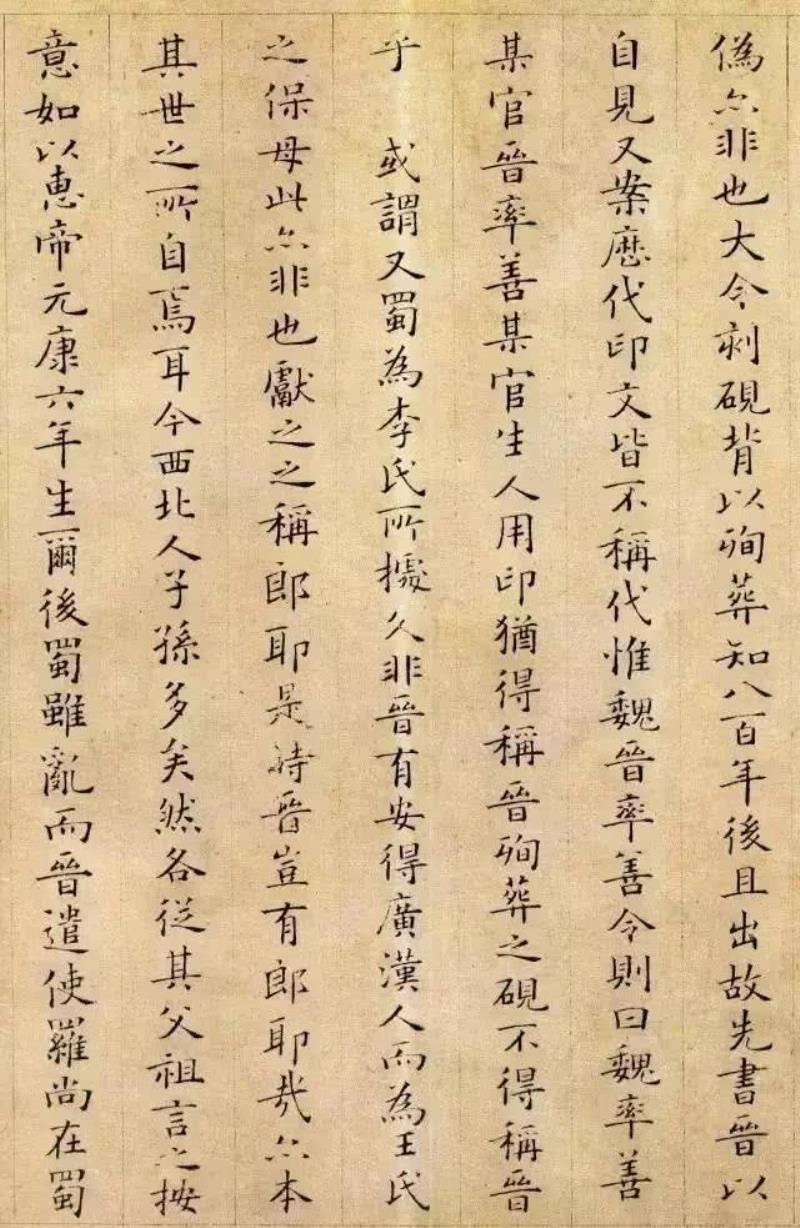 偽亦非也大令刻硯背以殉葬知八百年後且出故先書晉以
自見又案歷代印文皆不稱代惟魏晉率善令則曰魏率善
某官晉率善某官生人用印猶得稱晉殉葬之硯不得稱晉
乎　或謂又蜀為李氏所據久非晉有安得廣漢人而為王氏
之保母此亦非也獻之之稱郎耶是時晉豈有郎耶哉亦本
其世之所自焉耳今西北人子孫多矣然各從其父祖言之按
意如以惠帝元康六年生爾後蜀雖亂而晉遣使羅尚在蜀